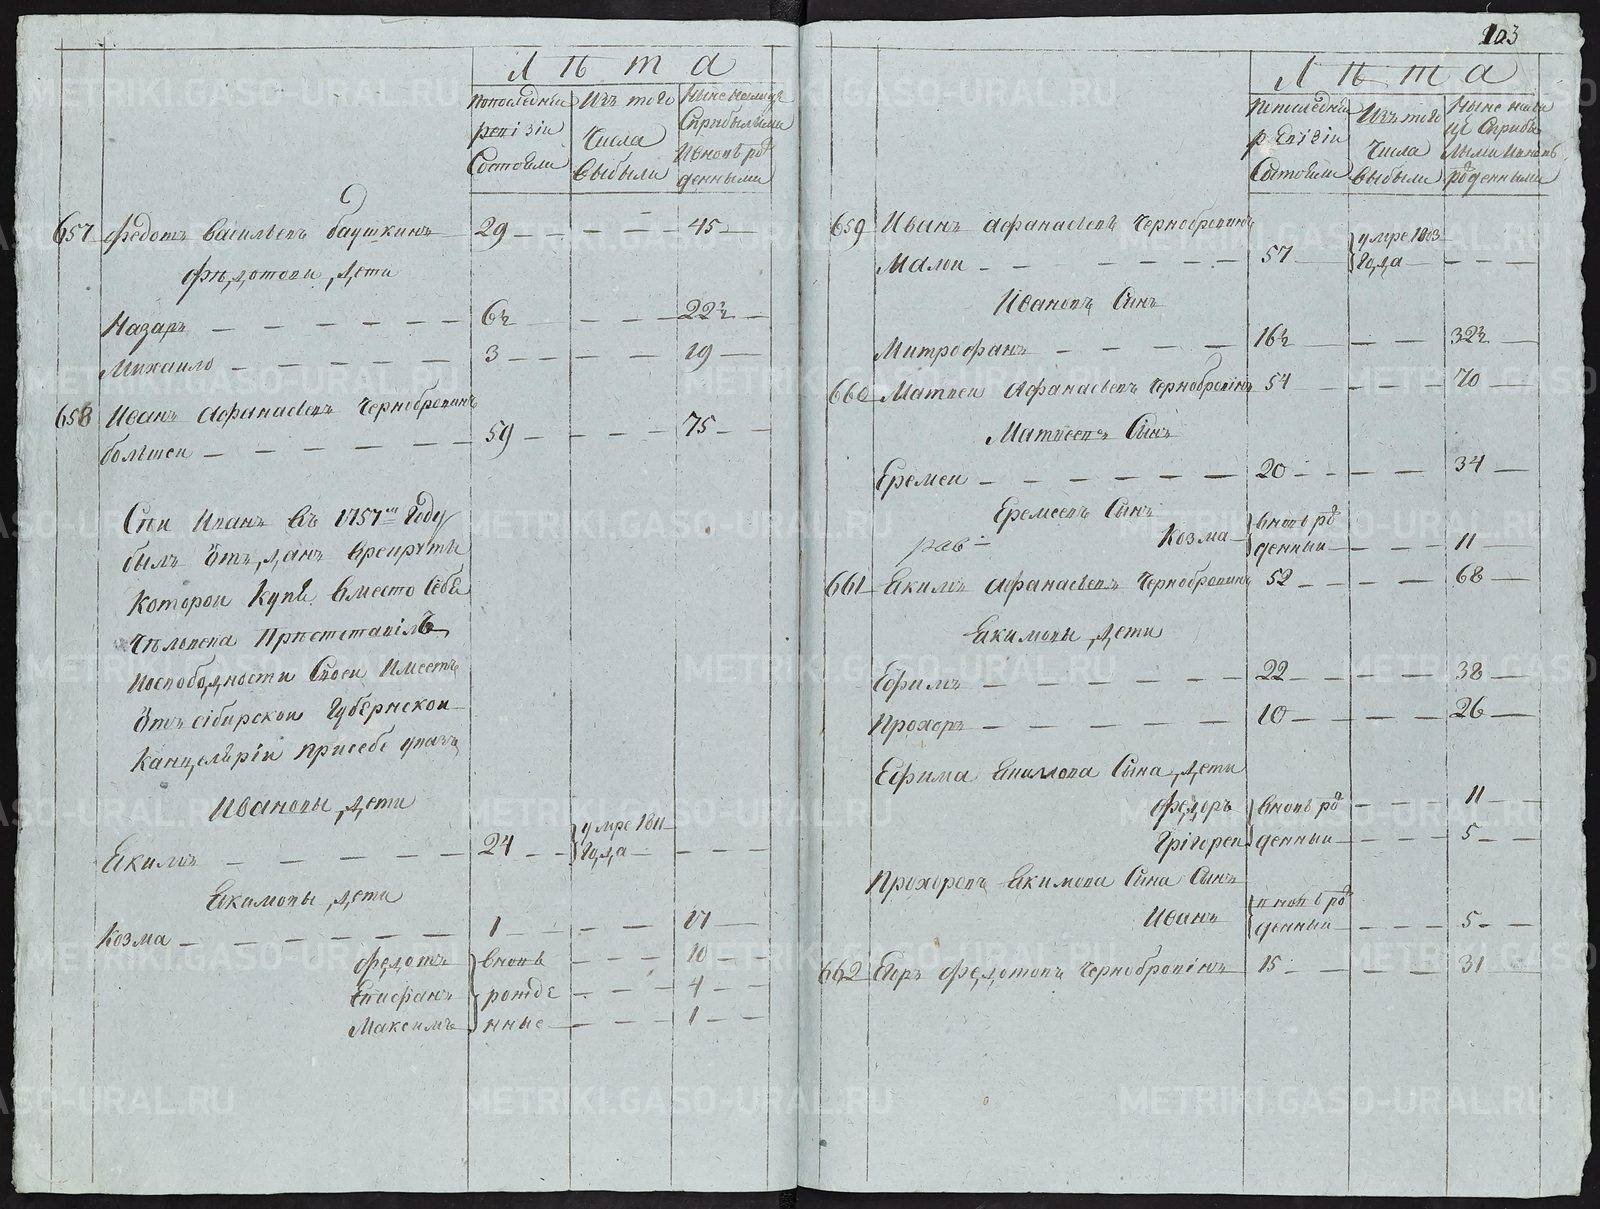 Лѣта
По последнеи ревізіи Состояли
Изъ того Числа Выбыли
Ныне налицо Сприбылыми И вновь рожденными
657 Федотъ Васильевъ баушкинъ 29 45
Федотовы дети
Назаръ 6½ 22½
Михаило 3 19
658 Иванъ Афанасьевъ Чернобровинъ
большеи 59 75
Сеи Иванъ Въ 1757м Году
былъ Отъданъ Врекруты
Которои Купя Вместо Себя
Человека Приставилъ
Посвободности Своеи Имеетъ
Отъ сібирскои Губернскои
Канцеляріи Присебе указъ
Ивановы дети
Екимъ 24 умре 1811
Года
Екимовы дети
Козма 1 17
Федотъ вновь 10
Епифанъ рожде 4
Максимъ нные 1
103
Лѣта
По последнеи ревізіи Состояли
Изъ того Числа Выбыли
Ныне нали це Сприбы лыми И вновь рожденными
659 Иванъ Афанасьевъ Чернобровинъ
Малои 57 умре 1803
Года
Ивановъ Сынъ
Митрофанъ 16½ 32½
660 Матвеи Афанасьевъ Чернобровинъ 54 70
Матвеевъ Сынъ
Еремеи 20 34
Еремеевъ Сынъ
Козма вновь рож
денныи 11
661 Екимъ Афанасьевъ Чернобровинъ 52 68
Екимовы дети
Ефимъ 22 38
Прохоръ 10 26
Ефима Екимова Сына дети
Федоръ вновь рож 11
Грігореи денныи 5
Прохоровъ Екимова Сына Сынъ
Иванъ вновь рож
денныи 5
662 Егоръ Федотовъ Чернобровінъ 15 31
METRIKI.GASO-URAL.RU